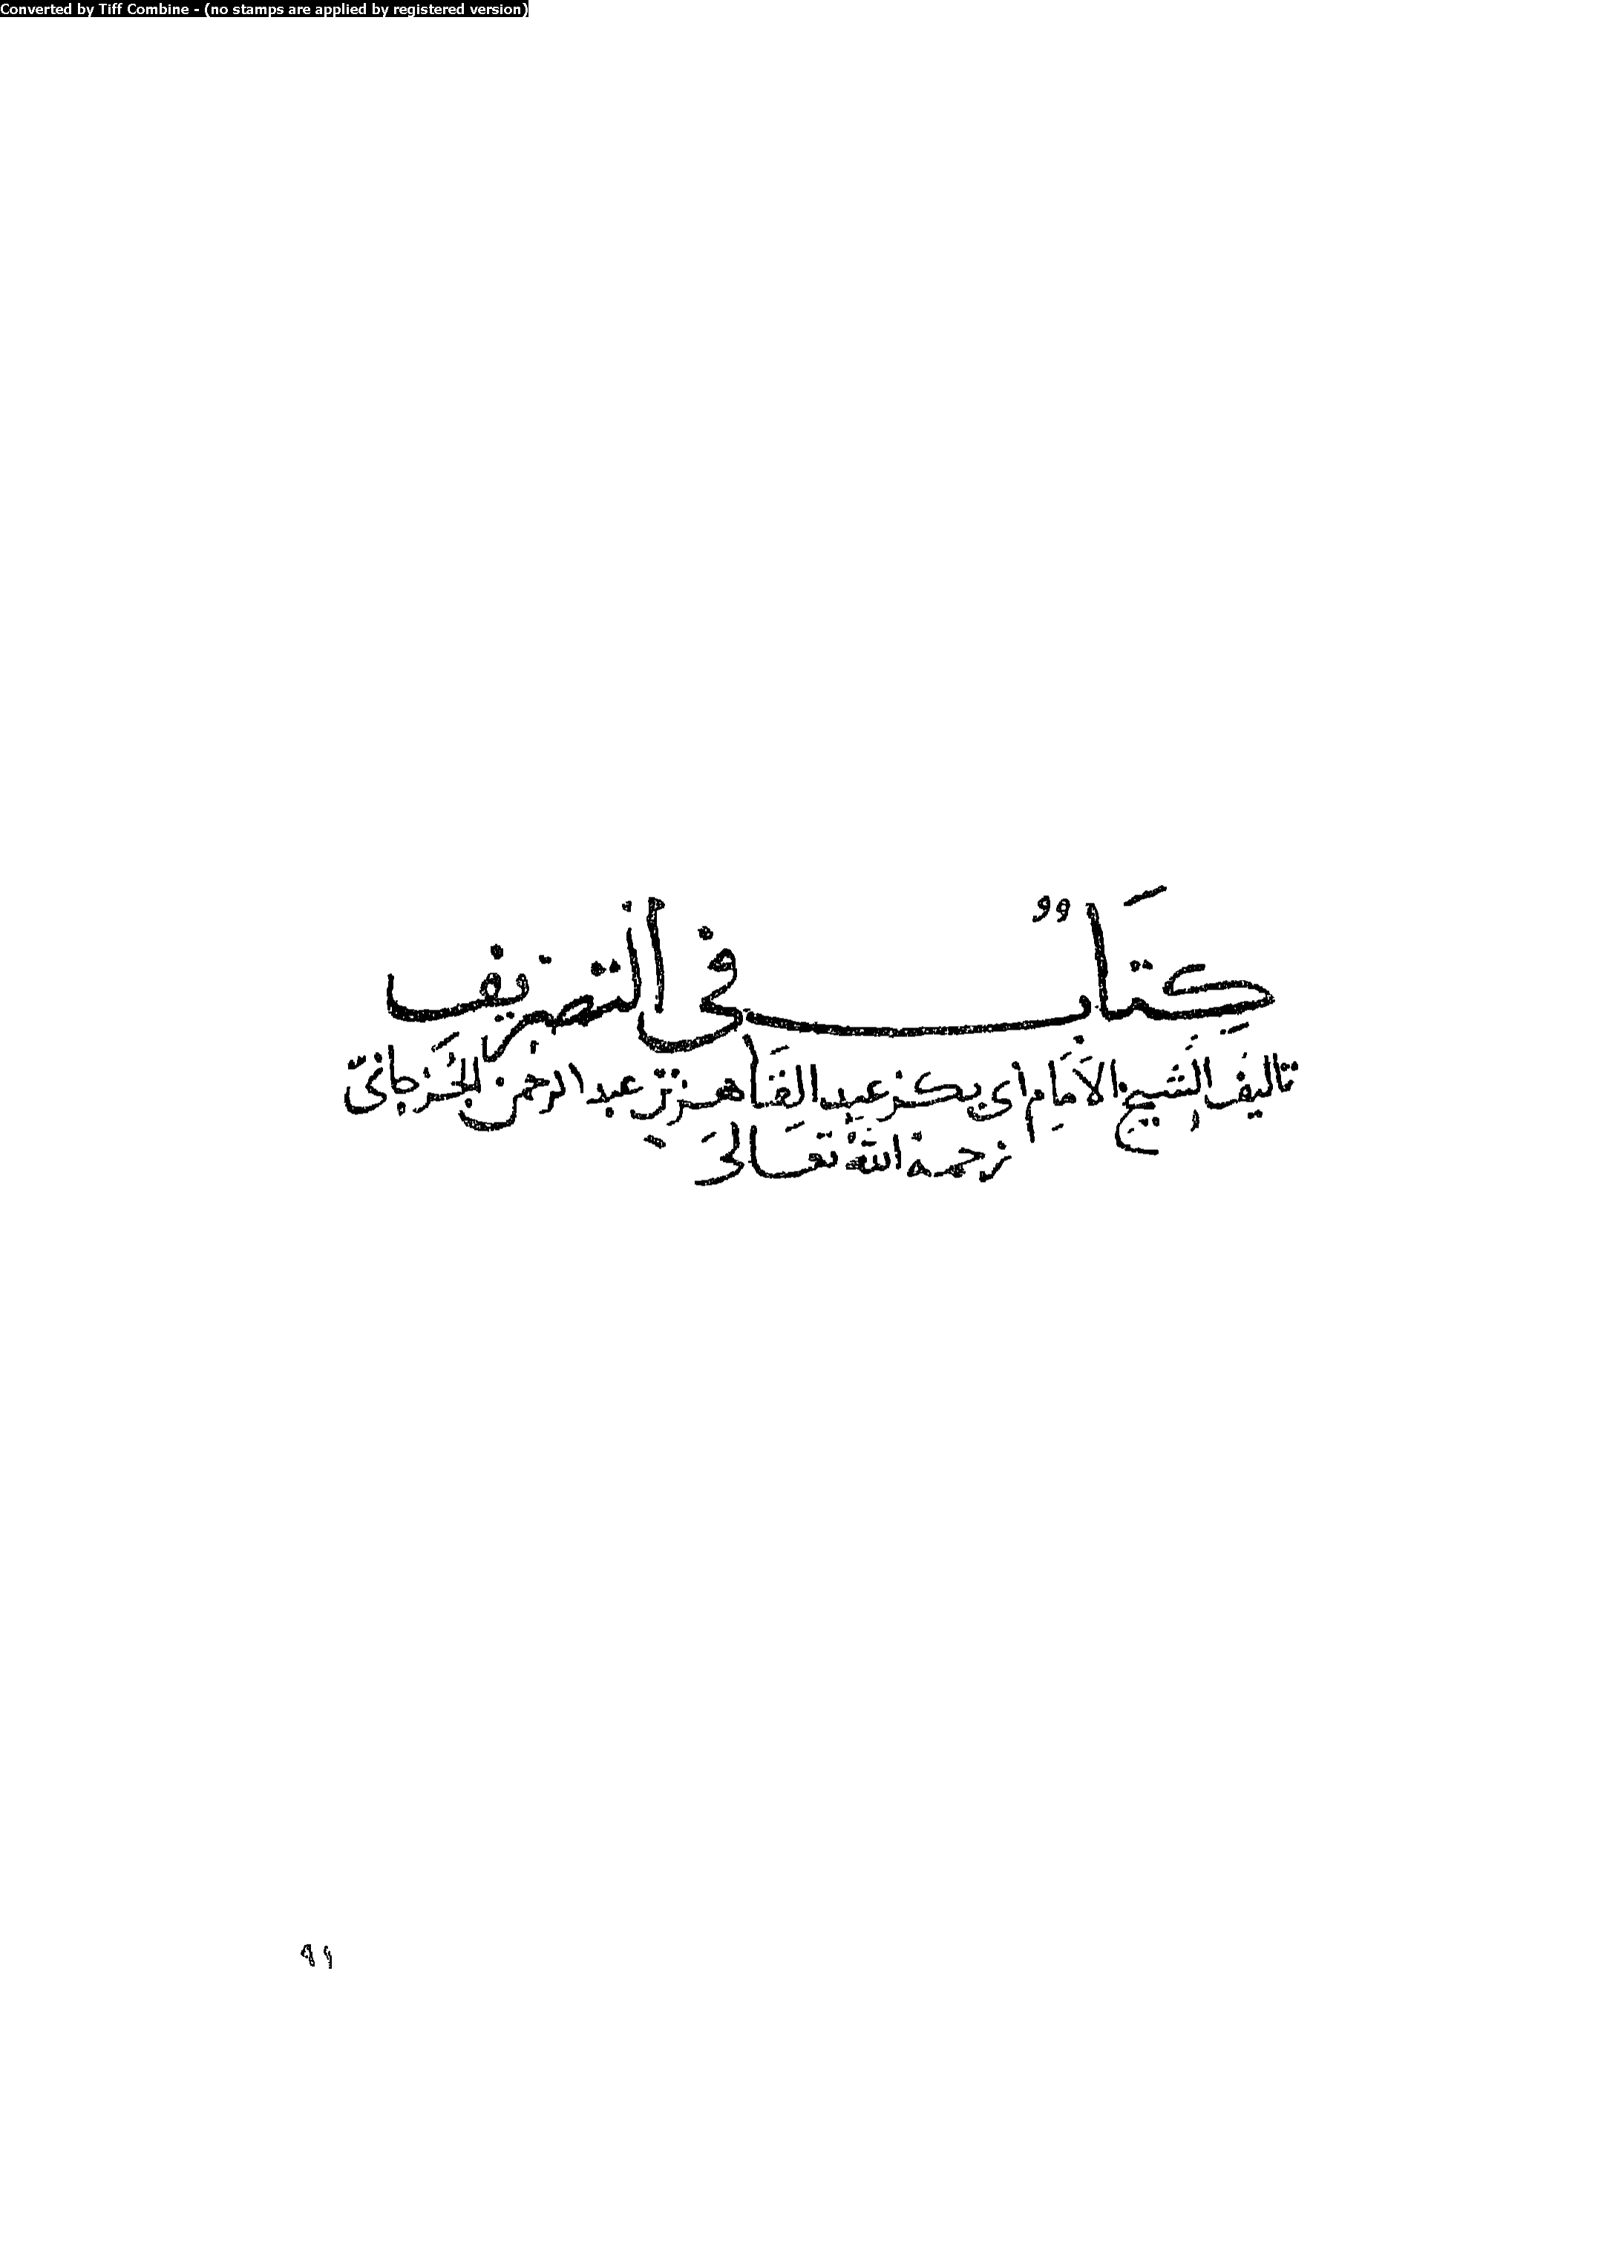 Converted by Tiff Combine - (no stamps are applied by registered version)
كتاب في التصريف
تأليف الشيخ الامام أبي بكر عبد القاهر بن عبد الرحمن الجرجاني
رحمة الله تعالى